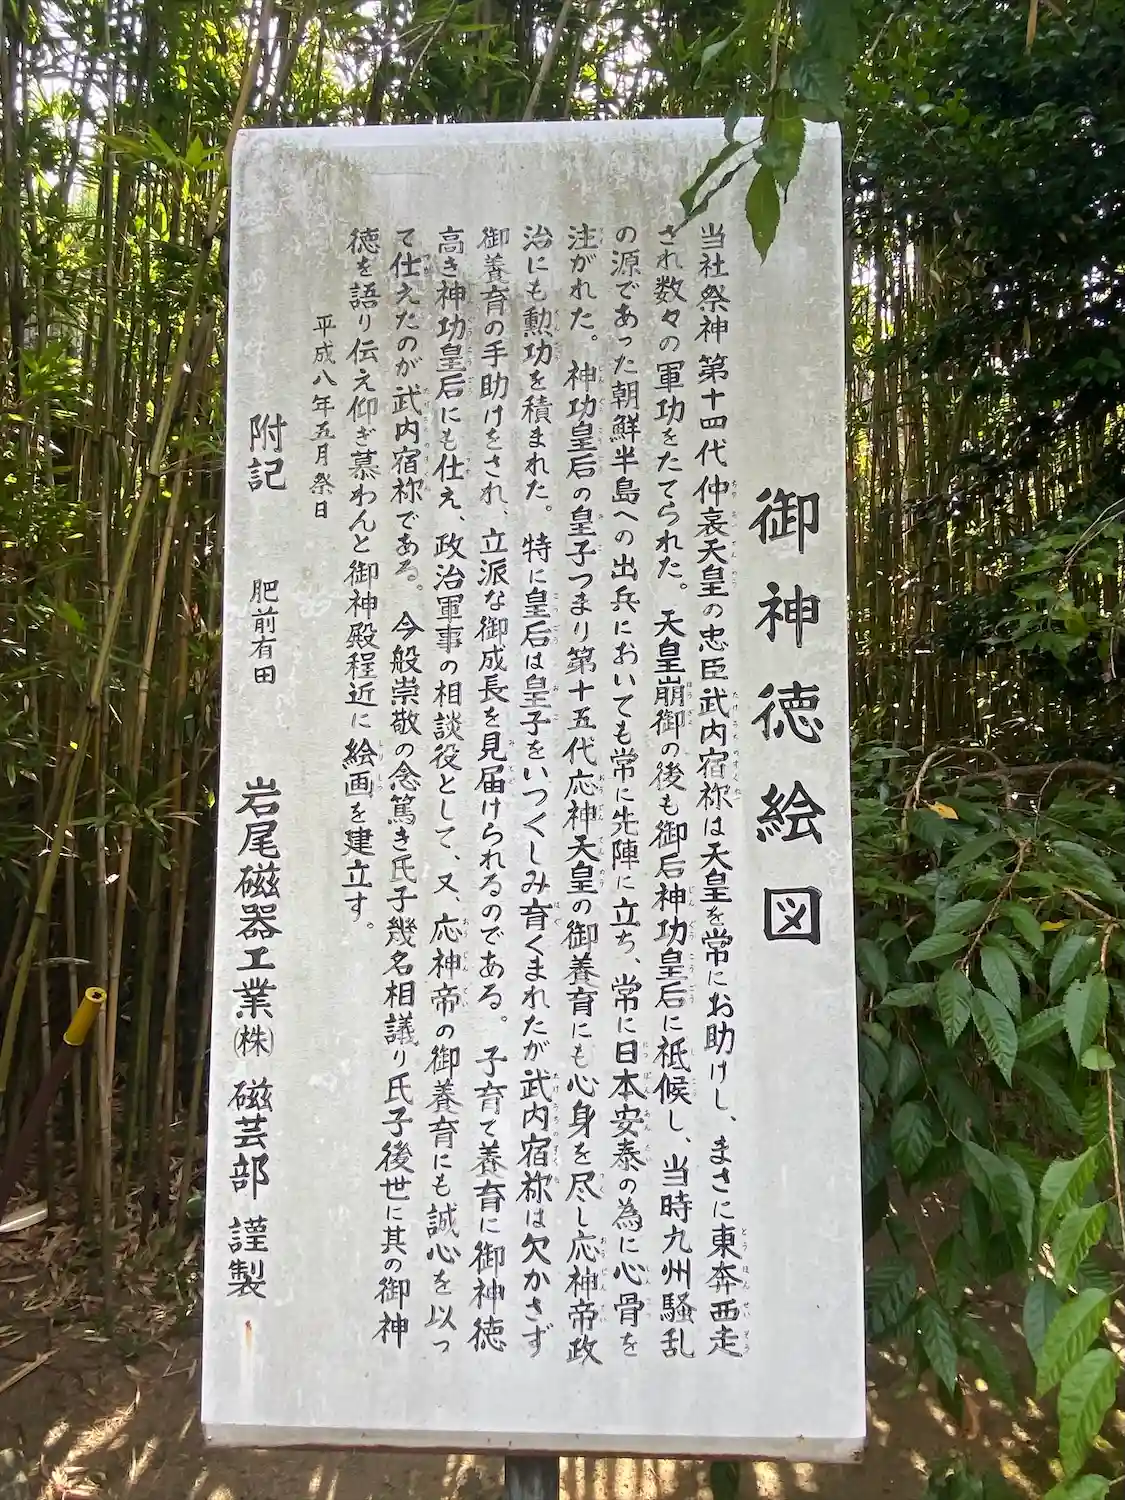 御神徳絵図
当社祭神第十四代仲哀天皇の忠臣武内宿祢は天皇を常にお助けし、まさに東奔西走
され数々の軍功をたてられた。天皇崩御の後も御后神功皇后に祗候し、当時九州騒乱
の源であった朝鮮半島への出兵においても常に先陣に立ち、常に日本安泰の為に心骨を
注がれた。神功皇后の皇子つまり第十五代応神天皇の御養育にも心身を尽し応神帝政
治にも勲功を積まれた。特に皇后は皇子をいつくしみ育くまれたが武内宿祢は欠かさず
御養育の手助けをされ、立派な御成長を見届けられるのである。子育て養育に御神徳
高き神功皇后にも仕え、政治軍事の相談役として、又、応神帝の御養育にも誠心を以っ
て仕えたのが武内宿祢である。今般崇敬の念篤き氏子幾名相議り氏子後世に其の御神
徳を語り伝え仰ぎ慕わんと御神殿程近に絵画を建立す。
平成八年五月祭日
附記 肥前有田 岩尾磁器工業㈱ 磁芸部 謹製